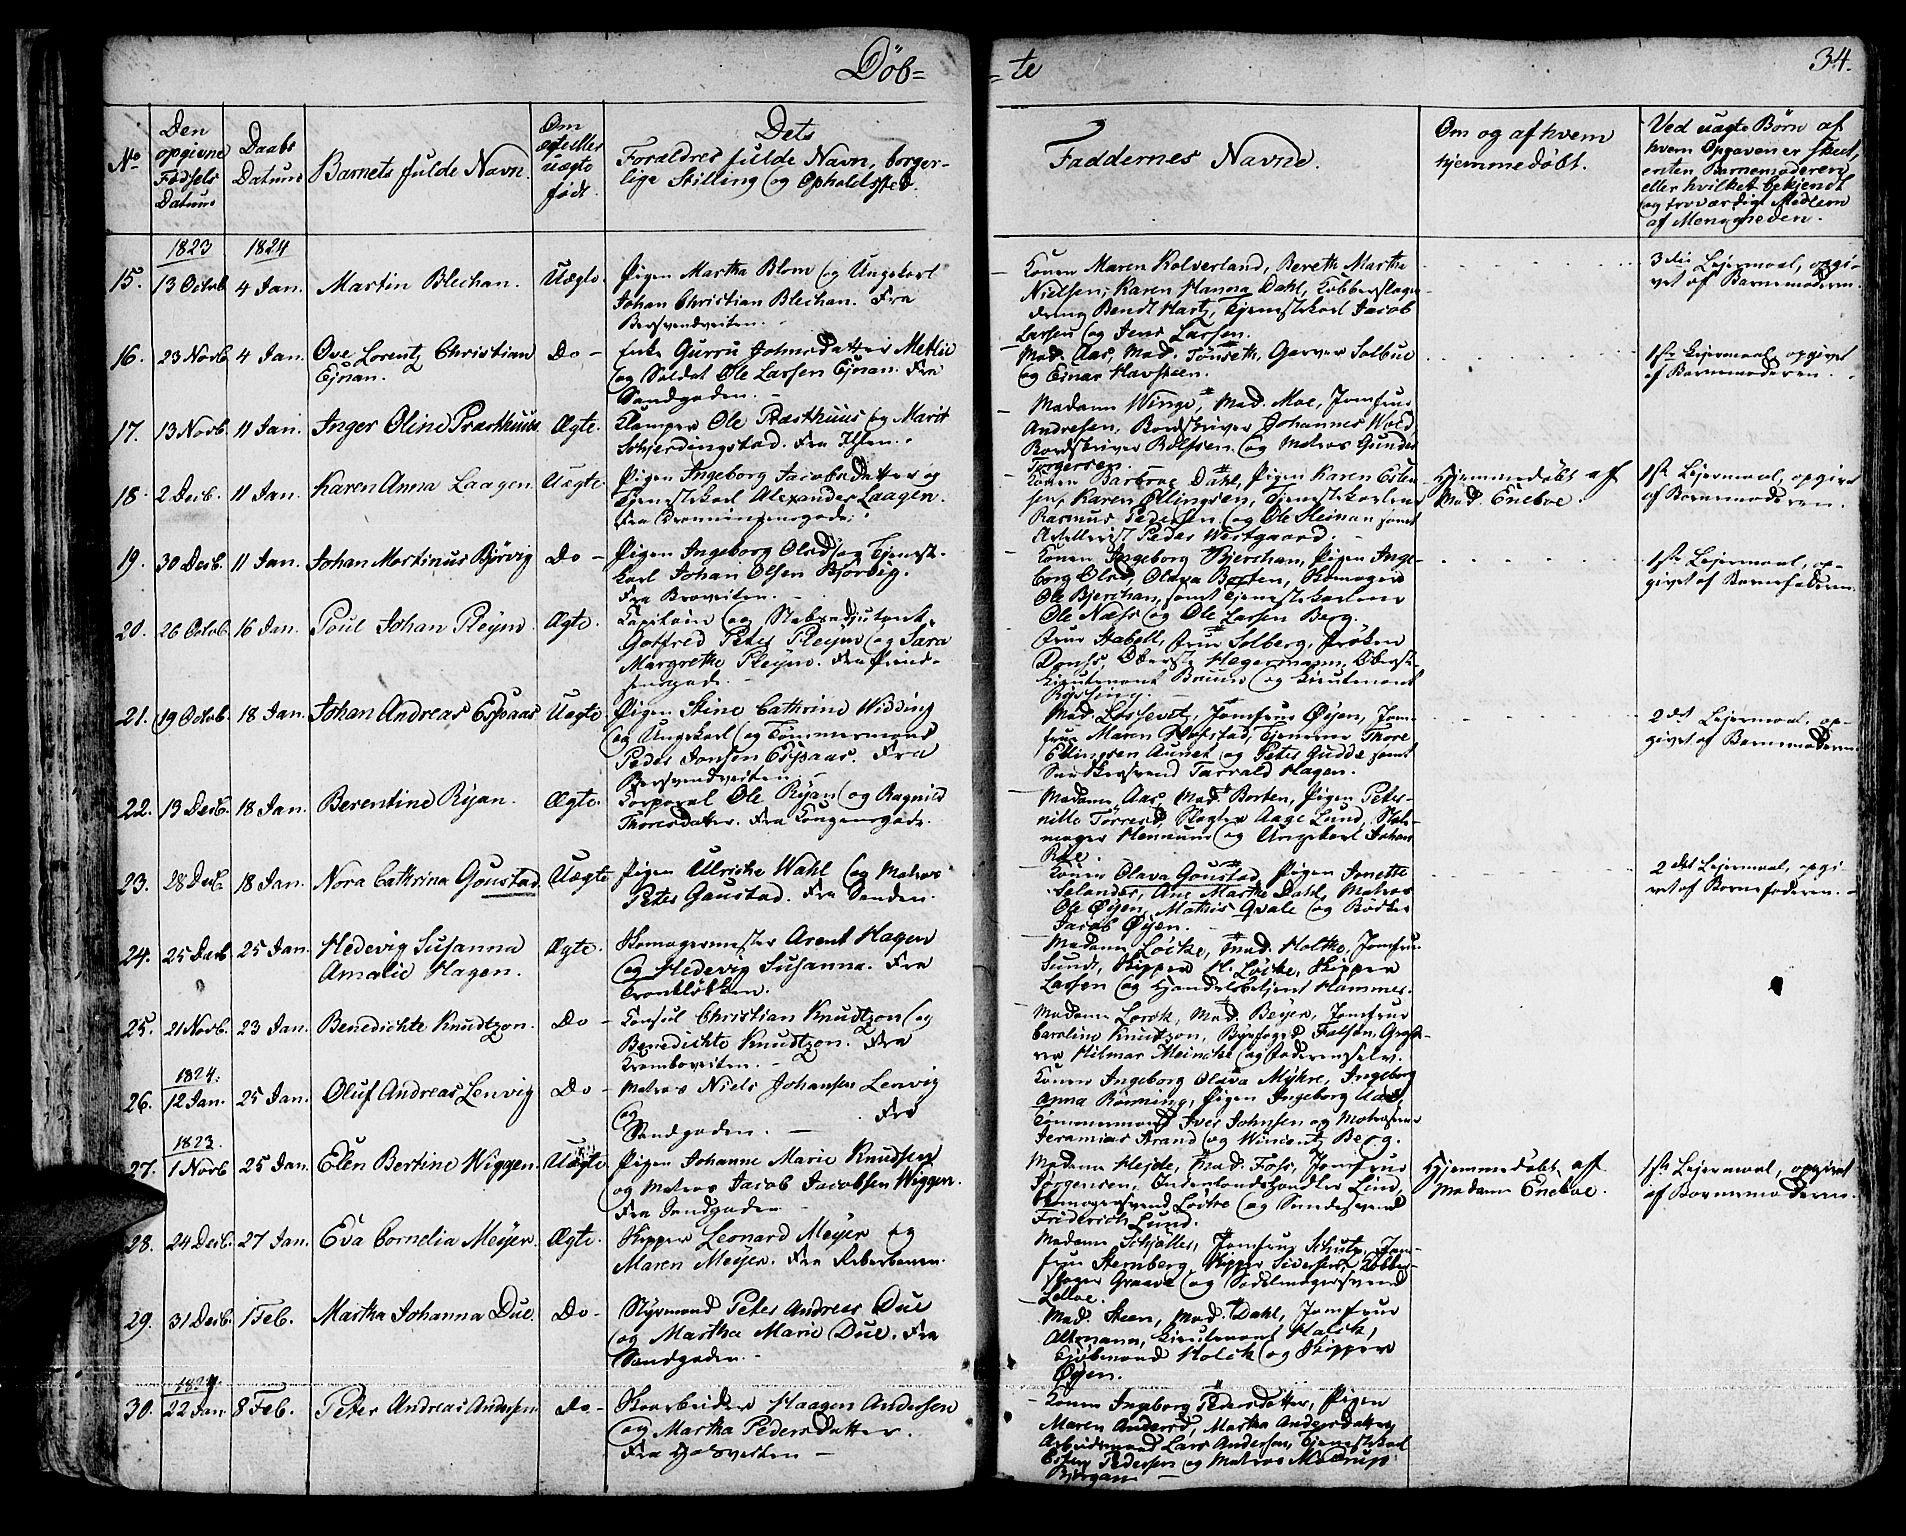 Døb=
=te
34.
No
Den opgivne Fødsels Datum
Daabs Datum
Barnets fulde Navn.
Om ægte eller uægte født.
Dets Forældres fulde Navn, borger-
lige Stilling og Opholdssted.
Faddernes Navne.
Om og af hvem
hjemmedøbt.
Ved uægte Børn af
hvem Opgaven er skeet,
enten Barnemoderen
eller hvilket bekjendt
og troværdigt Medlem
af Menigheden.
1823 1824
15. 13 Octob. 4 Jan. Martin Blechan. Uægte.
Pigen Martha Blom og Ungekarl
Johan Christian Blechan. Fra
Bersvendveiten.
Konen Maren Kolverland, Bereth Martha
Nielsen, Karen Hanna Dahl, Kobberslager
Bendt Hartz, Tjenestekarl Jacob
Larsen og Jens Larsen.
3die Leiermaal, opgi-
vet af Barnemoderen.
16. 23 Novb. 4 Jan. Ove Lorentz Christian
Ejnan. Do -
Enke Gurru Johnsdatter Metlie
og Soldat Ole Larsen Ejnan. Fra
Sandgaden.
Mad. Aas, Mad. Tønseth, Garver Solbue
og Einar Havsteen.
1ste Leiermaal, opgivet
af Barnemoderen.
17. 13 Novb. 11 Jan. Inger Oline Præsthuus. Ægte.
Klamper Ole Præsthuus og Marit
Schjerdingstad. Fra Ihlen.
Madame Winge, Mad. Moe, Jomfrue
Andresen, Bordskriver Johannes Wold,
Bordskriver Rolfsen og Matros Gunder
Torgersen.
18. 2 Decb. 11 Jan. Karen Anna Laagen. Uægte.
Pigen Ingeborg Jacobsdatter og
Tjenestekarl Alexander Laagen.
Fra Dronningensgade.
Konen Barbroe Dahl, Pigen Karen Esten-
sen, Karen Ellingsen, Tjenestekarlene
Rasmus Pedersen og Ole Heinan samt
Artellerist Peder Westgaard.
Hjemmedøbt af
Mad. Eneboe.
1ste Leiermaal, opgivet
af Barnemoderen.
19. 30 Decb. 11 Jan. Johan Martinus Bjørvig Do -
Pigen Ingeborg Olsd. og Tjeneste-
karl Johan Olsen Bjørvig.
Fra Braveiten.
Konen Ingeborg Bjerchan, Pigen Inge-
borg Olsd, Olava Borten, Homager
Ole Bjerchan, samt Tjenestekarlene
Ole Næss og Ole Larsen Berg.
1ste Leiermaal, op-
givet af Barnefaderen.
20. 26 Octob. 16 Jan. Poul Johan Pleym. Ægte.
Capitain og Stabsadjutant
Gotfred Peter Pleym og Sara
Margrethe Pleym. Fra Prind-
sensgade.
Frue Stabell, Frue Solberg, Frøken
Donss, Oberste Hegermann, Oberst-
Lieutenant Bruun og Lieutenant
Ryssing.
21. 19 Octob. 18 Jan. Johan Andreas Espaas Uægte
Pigen Stine Cathrine Widding
og Ungekarl og Tømmermand
Peder Jonsen Espaas. Fra
Bersvendveiten.
Mad. Lossevitz, Jomfrue Øyen, Jom-
frue Maren Hofstad, Tjenerne Thore
Ellingsen Aunet og Peter Gudde samt
Snedkersvend Tarrald Hagen.
2det Leiermaal, op-
givet af Barnemoderen
22. 13 Decb. 18 Jan. Berentine Ryan. Ægte.
Corporal Ole Ryan og Ragnild
Thoresdatter. Fra Kongensgade.
Madame Aas, Mad. Borten, Pigen Peter-
nille Tørresd, Slagter Aage Lund, Sal-
mager Hemmum og Ungekarl Johan
Roe.
23. 28 Decb. 18 Jan. Nora Cathrina Goustad. Uægte
Pigen Ullriche Wahl og Matros
Peter Gaustad. Fra Sanden.
Konen Olava Goustad, Pigen Jonetta
Selander, Ane Marthe Dahl, Matros
Ole Øyen, Mathis Qvale og Bødker
Jacob Øyen.
2det Leiermaal, opgi-
vet af Barnefaderen.
24. 25 Decb. 25 Jan. Hedevig Susanna
Amalie Hagen. Ægte.
Homagermester Arent Hagen
og Hedevig Susanna. Fra
Tronkløkken.
Madame Løcke, Mad. Holthe, Jomfrue
Sundt, Skipper H. Løcke, Skipper
Larsen og Handelsbetjent Hammer.
25. 21 Novb. 23 Jan. Benedichte Knudtzon. Do -
Consul Christian Knudtzon og
Benedichte Knudtzon. Fra
Kramboveiten.
Madame Lorck, Mad. Beyer, Jomfrue
Caroline Knudtzon, Byefoged Falsen, Gros-
serer Hilmar Meincke og Faderen selv.
1824.
26. 12 Jan. 25 Jan. Oluf Andreas Lenvig Do -
Matros Niels Johansen Lenvig
og Fra
Sandgaden.
Konen Ingeborg Olava Myhre, Ingeborg
Anna Rønning, Pigen Ingeborg Aas,
Tømmermand Iver Johnsen og Matroserne
Jeramias Strand og Wincentz Berg.
1823.
27. 1 Novb. 25 Jan. Elen Bertine Wiggen. Uægte
Pigen Johanne Marie Knudsen
og Matros Jacob Jacobsen Wiggen.
Fra Sandgaden
Madame Hejde, Mad. Foss, Jomfrue
Jørgensen, Inderlandshandler Lind,
Homagersvend Løcke og Smedesvend
Friderich Lund.
Hjemmedøbt af
Madame Eneboe.
1ste Leiermaal, opgivet
af Barnemoderen.
28. 24 Decb. 27 Jan. Eva Cornelia Meyer. Ægte.
Skipper Leonard Meyer og
Maren Meyer. Fra Reberbanen.
Madame Schjølle, Jomfrue Schultz, Jom-
frue Sternberg, Skipper Sivertsen, Kobber-
slager Graave og Sadelmagersvend
Lolloe.
29. 31 Decb. 1 Feb. Martha Johanna Due. Do -
Styrmand Peter Andreas Due
og Martha Marie Due. Fra
Sandgaden.
Mad. Steen, Mad. Dahl, Jomfrue
Altmann, Lieutenant Holck,
Kjøbmand Holck og Skipper
Øyen.
1824
30. 22 Jan. 8 Feb. Peter Andreas Andersen Do -
Skoarbeider Haagen Andersen
og Martha Pedersdatter.
Fra Hosveiten
Konen Ingeborg Pedersdatter, Pigen
Maren Andersd, Martha Andersdatter,
Arbeidsmand Lars Andersen, Tjenestekarl
Esten Pedersen og Matros Mastrup
Bjørgan